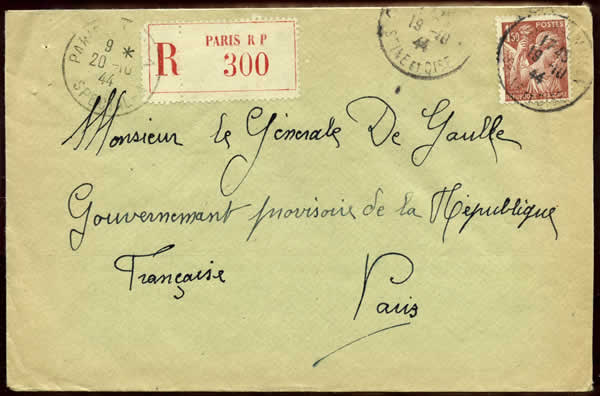 9 *
20 - 10
44
R PARIS R P
300
19 - 10
44
POSTES
19 - 10
44
Monsieur le Générale De Gaulle
Gouvernemant provisoire de la République
Française Paris